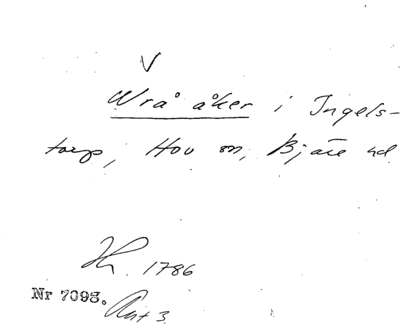 V
Wrå åker i Ingels-
torp, Hov sn, Bjäre hd
1786
Nr 7093.
Akt 3